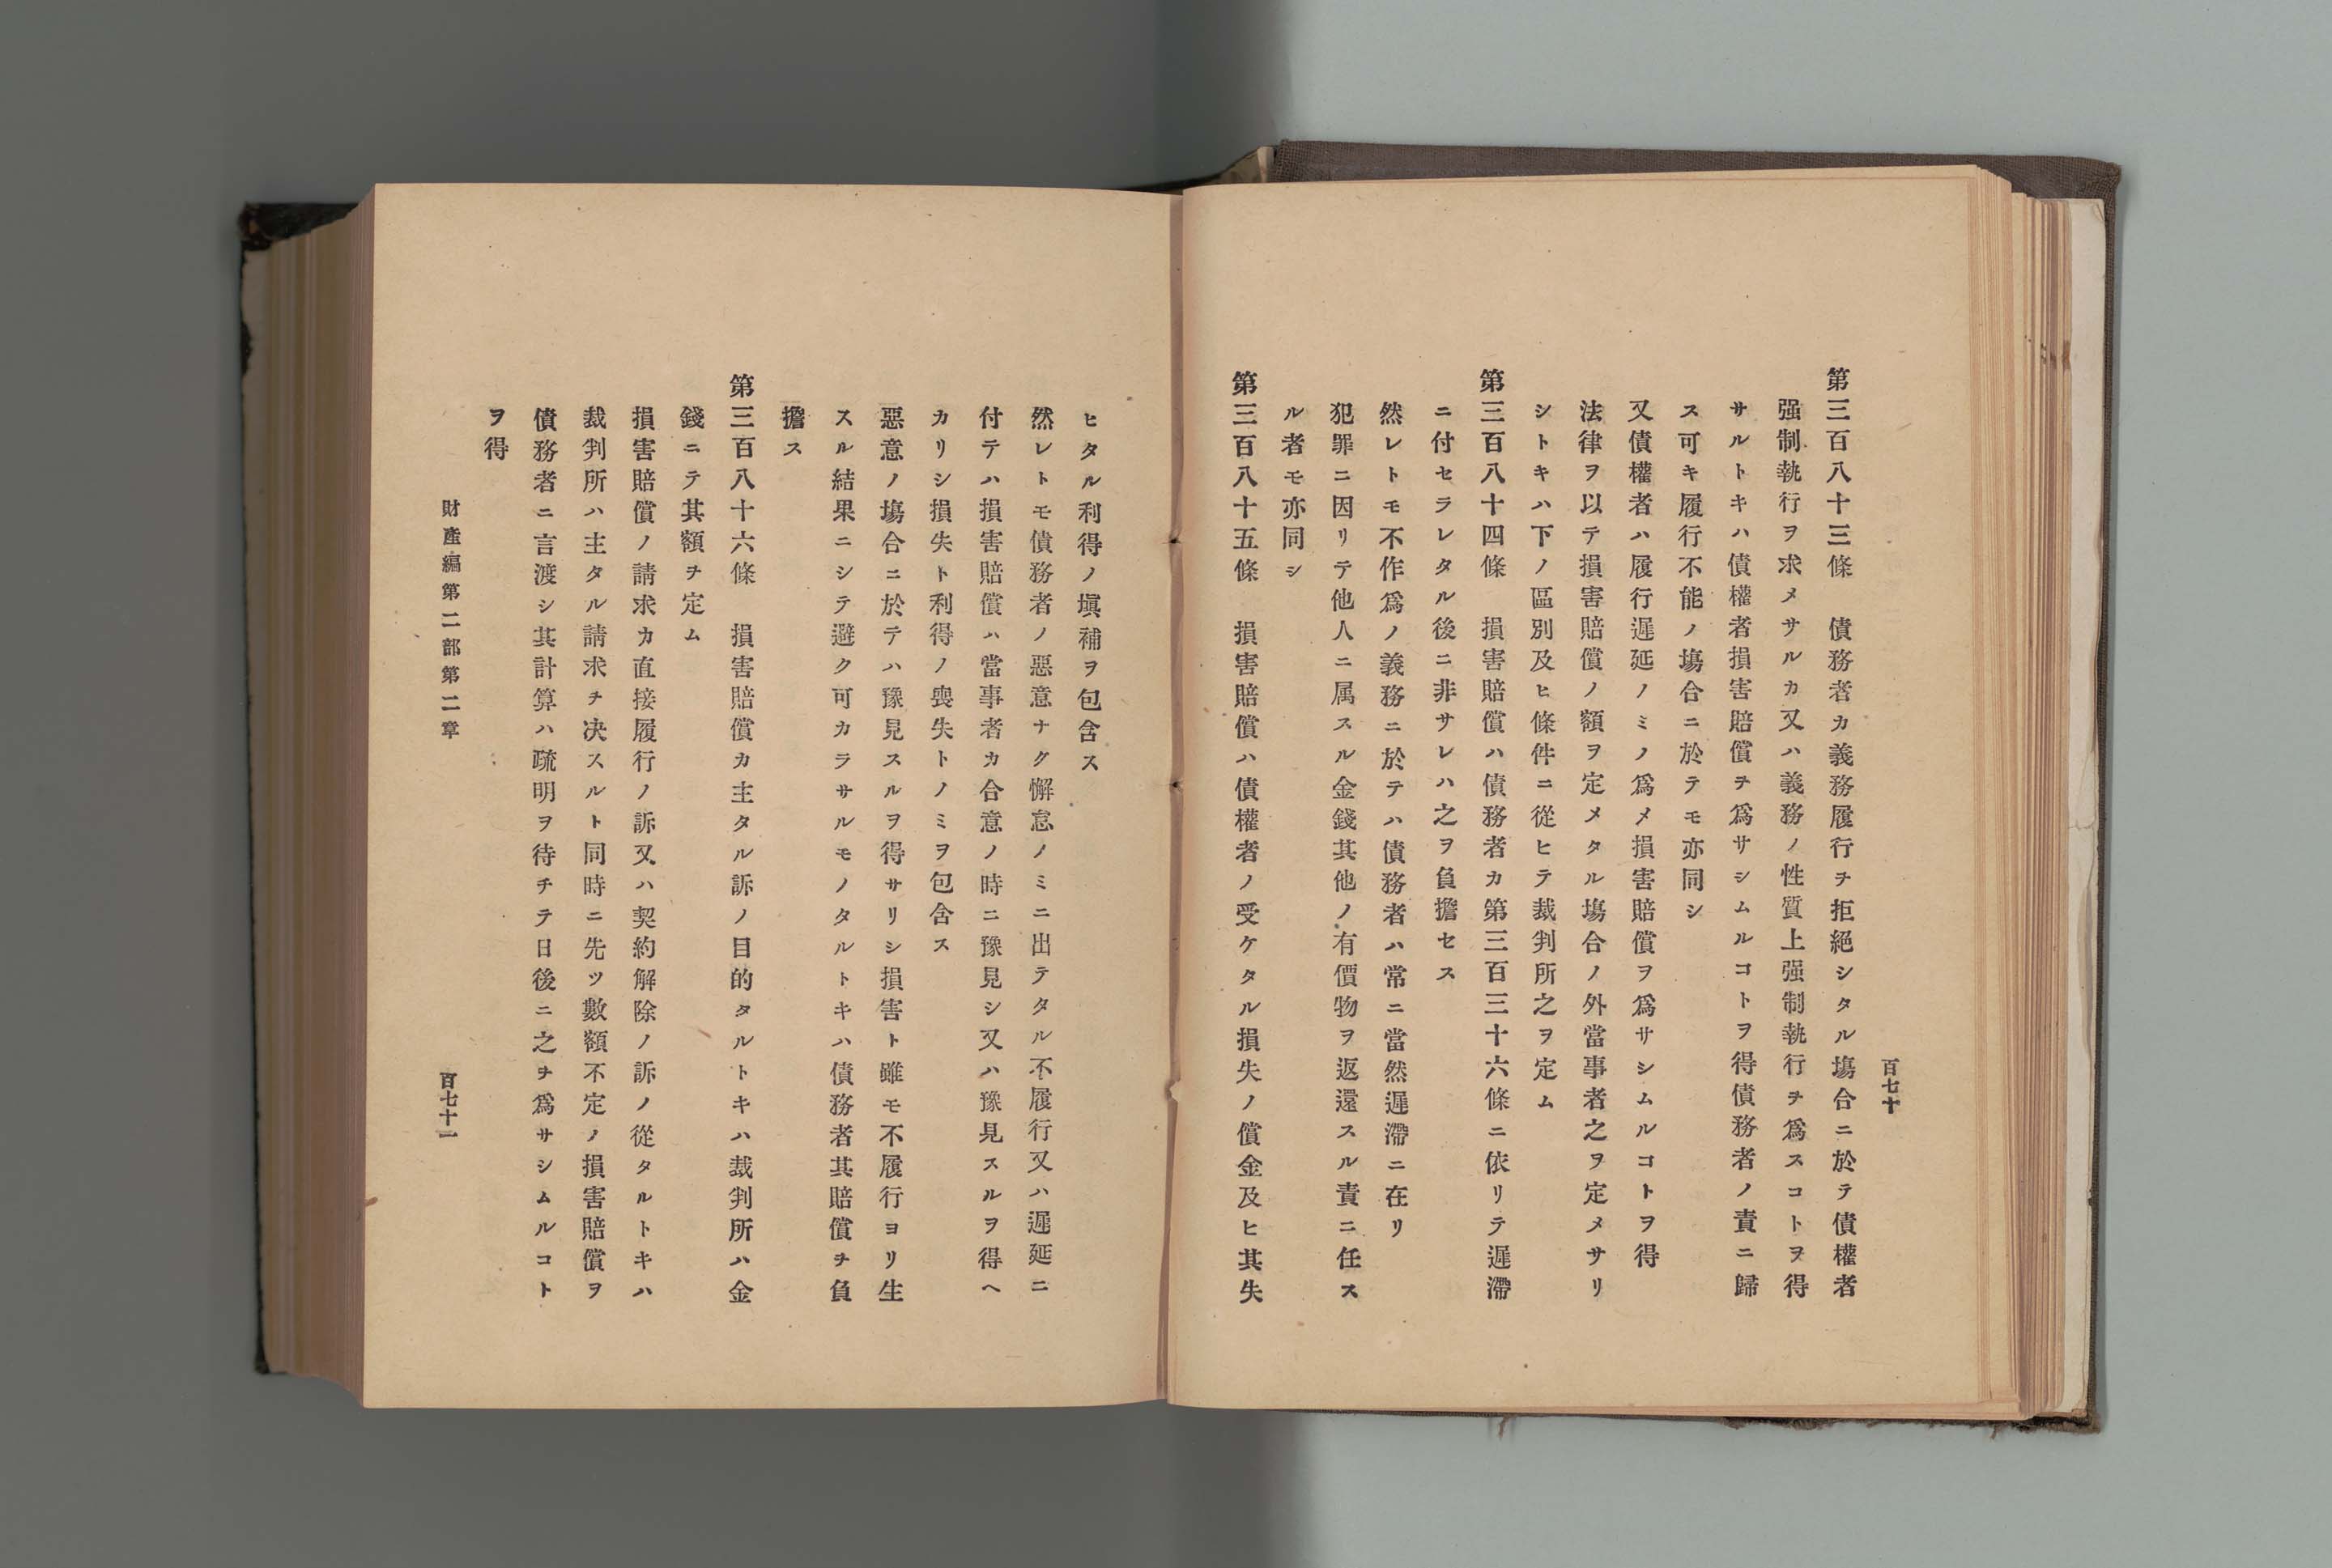 百七十
第三百八十三條　債務者カ義務履行ヲ拒絶シタル塲合ニ於テ債權者
强制執行ヲ求メサルカ又ハ義務ノ性質上强制執行ヲ爲スコトヲ得
サルトキハ債權者損害賠償ヲ爲サシムルコトヲ得債務者ノ責ニ歸
ス可キ履行不能ノ塲合ニ於テモ亦同シ
又債權者ハ履行遲延ノミノ爲メ損害賠償ヲ爲サシムルコトヲ得
法律ヲ以テ損害賠償ノ額ヲ定メタル塲合ノ外當事者之ヲ定メサリ
シトキハ下ノ區別及ヒ條件ニ從ヒテ裁判所之ヲ定ム
第三百八十四條　損害賠償ハ債務者カ第三百三十六條ニ依リテ遲滯
ニ付セラレタル後ニ非サレハ之ヲ負擔セス
然レトモ不作爲ノ義務ニ於テハ債務者ハ常ニ當然遲滯ニ在リ
犯罪ニ因リテ他人ニ属スル金錢其他ノ有價物ヲ返還スル責ニ任ス
ル者モ亦同シ
第三百八十五條　損害賠償ハ債權者ノ受ケタル損失ノ償金及ヒ其失
ヒタル利得ノ塡補ヲ包含ス
然レトモ債務者ノ惡意ナク懈怠ノミニ出テタル不履行又ハ遲延ニ
付テハ損害賠償ハ當事者カ合意ノ時ニ豫見シ又ハ豫見スルヲ得ヘ
カリシ損失ト利得ノ喪失トノミヲ包含ス
惡意ノ塲合ニ於テハ豫見スルヲ得サリシ損害ト雖モ不履行ヨリ生
スル結果ニシテ避ク可カラサルモノタルトキハ債務者其賠償ヲ負
擔ス
第三百八十六條　損害賠償カ主タル訴ノ目的タルトキハ裁判所ハ金
錢ニテ其額ヲ定ム
損害賠償ノ請求カ直接履行ノ訴又ハ契約解除ノ訴ノ從タルトキハ
裁判所ハ主タル請求ヲ决スルト同時ニ先ツ數額不定ノ損害賠償ヲ
債務者ニ言渡シ其計算ハ疏明ヲ待チテ日後ニ之ヲ爲サシムルコト
ヲ得
財產編第二部第二章
百七十一